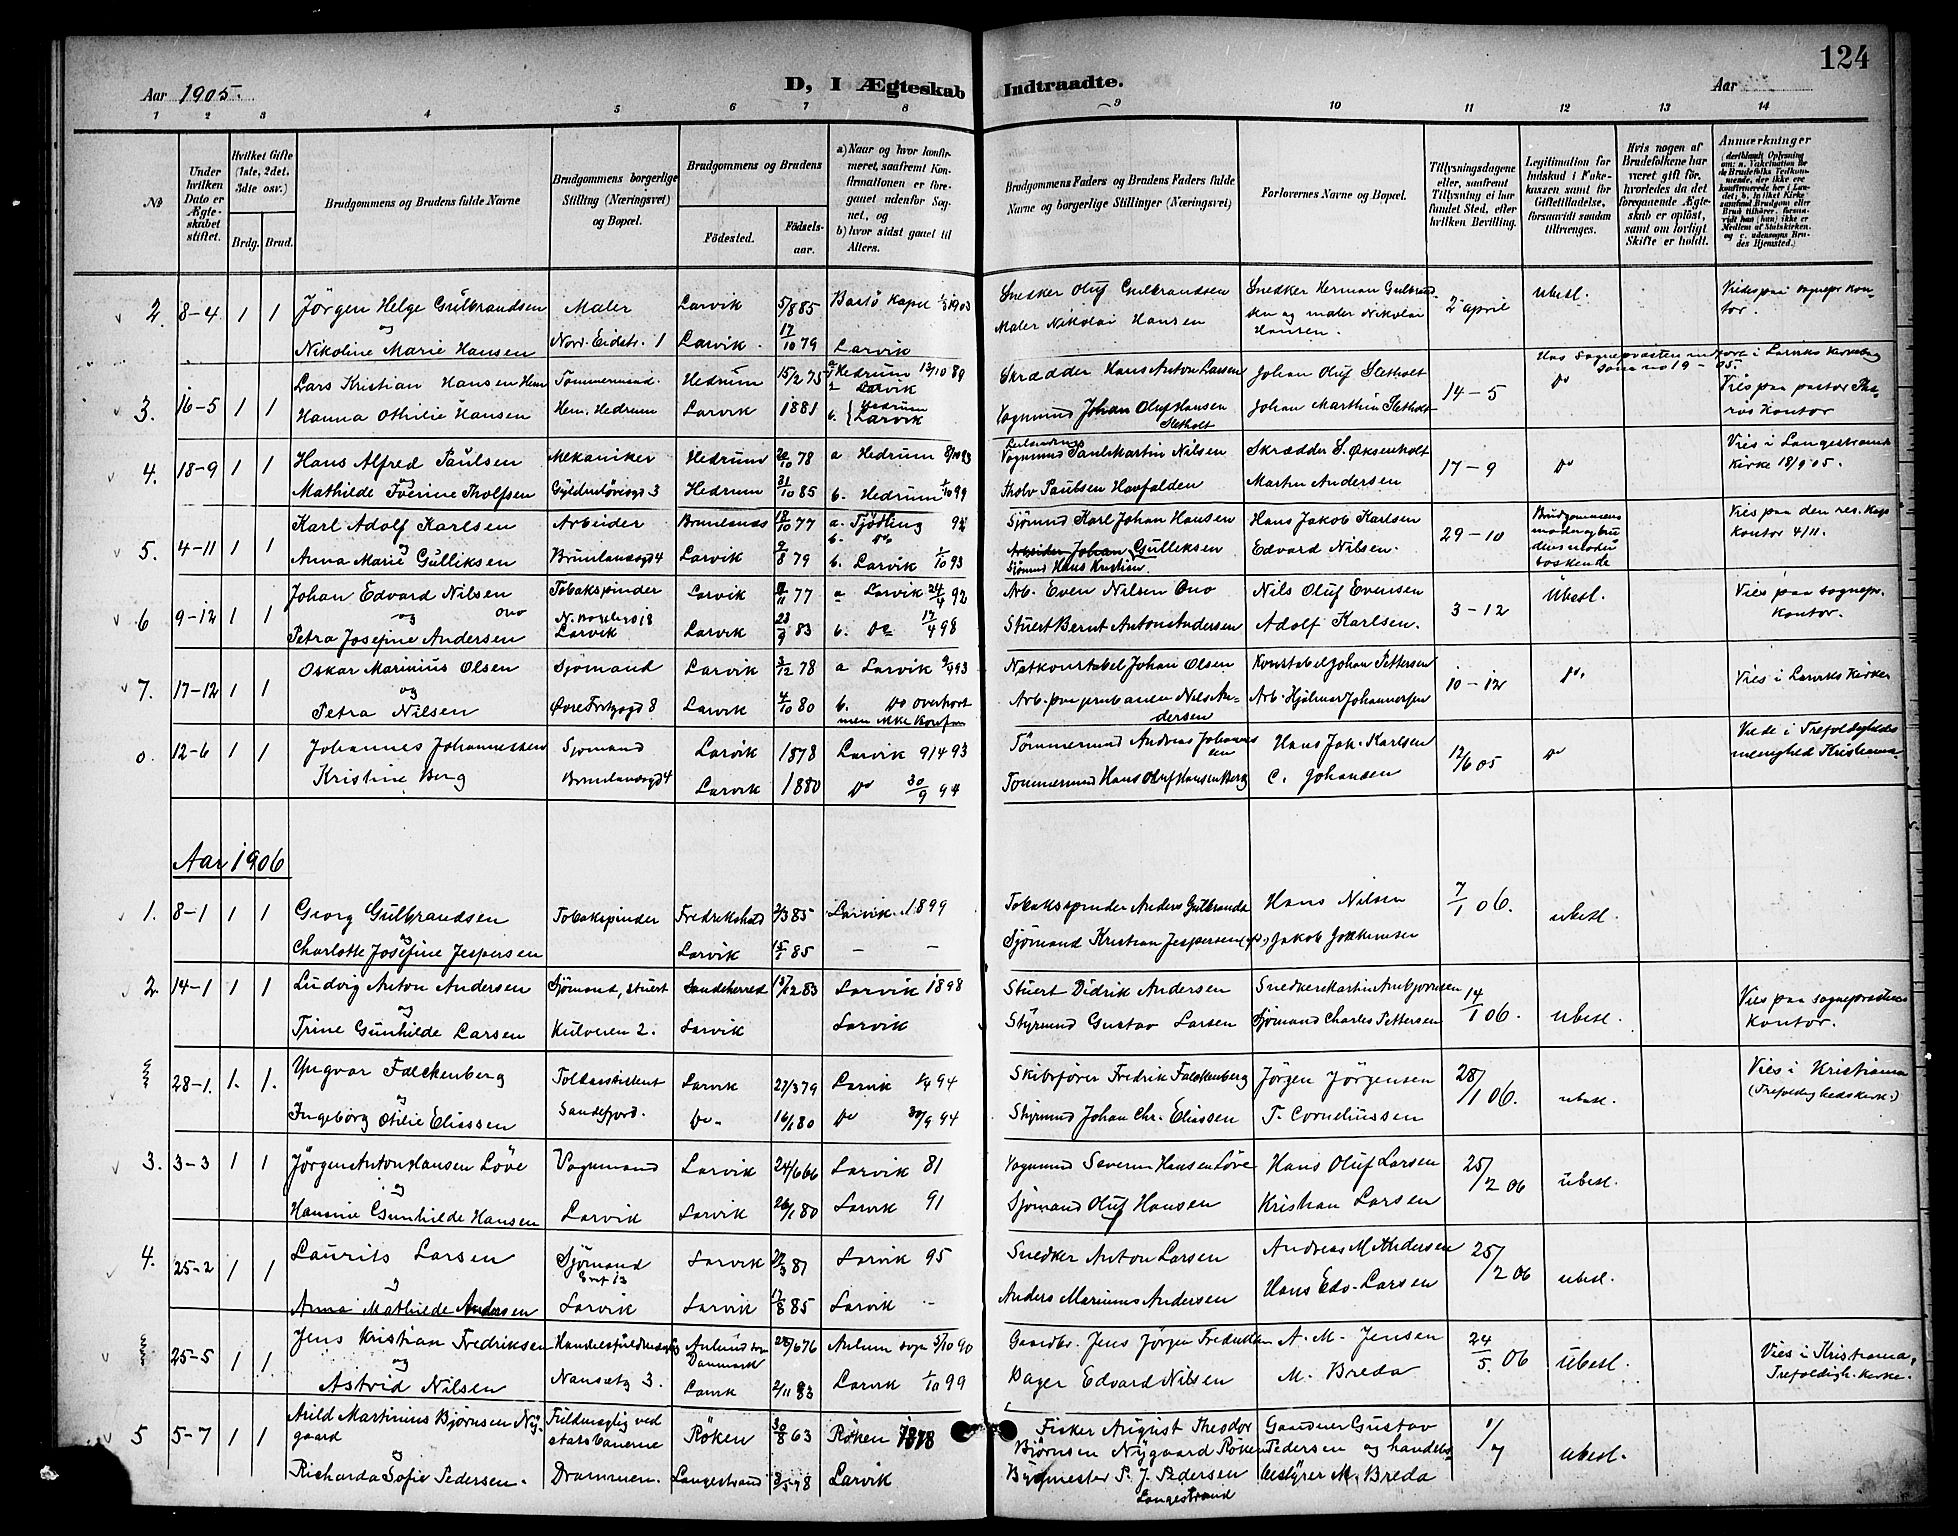 124
Aar 1905.
D, I Ægteskab Indtraadte.
Aar
1 2 3 4 5 6 7 8 9 10 11 12 13 14
No
Under hvilken Dato er Ægteskabet stiftet.
Hvilket Gifte (1ste, 2det, 3die osv.)
Brdg. Brud.
Brudgommens og Brudens fulde Navne
Brudgommens borgerlige Stilling (Næringsvei) og Bopæl.
Brudgommens og Brudens
Fødested. Fødselsaar.
a) Naar og hvor konfirmeret, saafremt Konfirmationen er foregaaet udenfor Sognet, og
b) hvor sidst gaaet til Alters.
Brudgommens Faders og Brudens Faders fulde Navne og borgerlige Stillinger (Næringsvei)
Forlovernes Navne og Bopæl.
Tillysningsdagene eller, saafremt Tillysning ei har fundet Sted, efter hvilken Bevilling.
Legitimation for Indskud i Enkekassen samt for Giftetilladelse, forsaavidt saadan tiltrænges.
Hvis nogen af Brudefolkene har været gift før, hvorledes da det foregaaende Ægteskab er opløst, samt om lovligt Skifte er holdt.
Anmærkninger
2. 8-4 1 1 Jörgen Helge Gulbrandsen Maler Larvik 5/8 85 Snedker Oluf Gulbrandsen Snedker Herman Gulbrandsen og maler Nikolai Hansen. 2 april ubesl.
og
Nikoline Marie Hansen Nord. Eidstr. 1 Larvik 17/10 79 Larvik Maler Nikolai Hansen
3. 16-5 1 1 Lars Kristian Hansen Hem Tømmermand Hedrum 15/2 75 Hedrum Skrædder Hans Anton Larsen Johan Oluf Sletholt 14-5 Do
Hanna Othilie Hansen Hem, Hedrum Larvik 1881 b. Hedrum Larvik Vognmand Johan Oluf Hansen Sletholt Johan Marthin Sletholt
4. 18-9 1 1 Hans Alfred Paulsen Mekaniker Hedrum 20/10 78 a Hedrum Vognmand Paul Martin Nilsen Skrædder S. Øksenholt 17-9 Do Vies i Langestrands Kirke 18/9 05.
og
Mathilde Iverine Tholfsen Gyldenløvesgd 3 Hedrum 31/10 85 b. Hedrum 1/10 99 Martin Andersen
5. 4-11 1 1 Karl Adolf Karlsen Arbeider Brunlanes 18/10 77 a. Tjödling 92 Sjömand Karl Johan Hansen Hans Jakob Karlsen 29-10 Vies paa den res. Kap. Kontor 4/11.
og
Anna Marie Gulliksen Brunlanesgd 4 Larvik 9/8 79 b. Larvik 1/10 93 Arbeider Johan Gulleksen Sjömand Hans Kristian Edvard Nilsen.
6 9-12 1 1 Johan Edvard Nilsen Ono Tobakspinder Larvik 77 a Larvik 24/4 92 Arb. Even Nilsen Ono Nils Oluf Evensen 3-12 Ubesl. Vies paa sognepr. Kontor.
og
Petra Josefine Andersen Larvik Larvik 83 b. Do 17/4 98 Stuert Bernt Anton Andersen Adolf Karlsen.
7. 17-12 1 1 Oskar Marinius Olsen Sjömand Larvik 3/12 78 a Larvik Natkonstabel Johan Olsen Konstabel Johan Pettersen 10-12 Do. Vies i Larviks Kirke
og
Petra Nilsen Larvik 4/10 80 b. Do overhørt men ikke konf. Arb. paa jernbanen Nils Andersen Arb. Hjalmar Johannesen
0. 12-6 1 1 Johannes Johannessen Sjømand Larvik 1878 Larvik 9/4 93 Tømmermand Andreas Johannessen Hans Joh. Karlsen 12/6 05 Do Viede i Trefoldigheds menighed Kristiania
Kristine Berg Brunlanesgd 4 Larvik 1880 Do 30/9 94 Tømmermand Hans Oluf Hansen Berg C. Johansen
Aar 1906
1. 8-1 1 1 Georg Gulbrandsen Tobakspinder Fredrikshald 2/3 85 Larvik 1899 Tobakspinder Anders Gulbrands Hans Nilsen 7/1 06. ubesl.
og
Charlotte Josefine Jespersen Larvik 15/1 85 – – Sjømand Kristian Jespersen Jakob
2 14-1 1 1 Ludvig Anton Andersen Sjømand, stuert Sandeherred 83 Larvik 1898 Stuert Didrik Andersen 14/1 06. ubesl. Vies paa sogneprestens Kontor.
og
Trine Gunhilde Larsen Kulveren 2. Larvik Larvik Styrmand Gustav Larsen Sjømand Charles Pettersen
28-1. 1. 1. Yngvar Falckenberg Toldassistent Larvik 27/3 79 Larvik 94 Skibsfører Fredrik Falckenberg Jörgen Jörgensen 28/1 06. ubesl. Vies i Kristiania (Trefoldighedskirke.)
og
Ingeborg Otilie Eliassen Sandefjord. Do. 16/1 80 Do 30/9 94 Styrmand Johan Chr. Eliassen T. Corneliussen
3. 3-3 1 1 Jörgen Anton Hansen Löve Vognmand Larvik 24/6 66 Larvik 81 Vognmand Severin Hansen Löve Hans Oluf Larsen 25/2 06 ubesl.
og
Hansine Gunhilde Hansen Larvik Larvik 26/1 80 Larvik 91 Sjømand Oluf Hansen Kristian Larsen
4. 25-2 1 1 Laurits Larsen Sjømand Larvik 81 Larvik 95 Snedker Anton Larsen Andreas M. Andersen 25/2 06 ubesl.
og
Anna Mathilde Andersen Larvik Larvik 17/8 85 Larvik – Anders Marinius Andersen Hans Edv. Larsen
25-5 1 1 Jens Kristian Fredriksen Danmark 76 Aulum sogn 5/10 90 Gaardbr. Jens Jörgen Fredriksen A. M. Jensen 24/5. 06 Ubesl. Vies i Kristiania, Trefoldigh. kirke.
og
Astrid Nilsen Nansetg 3. Larvik 2/11 83 Larvik 1/10 99 Bager Edvard Nilsen M. Breda
5 5-7 1 1 Arild Martinius Bjørnsen Nygaard Fuldmægtig ved statsbanerne Røken 30/8 63 Røken 1878 Fisker August Theodor Bjørnsen Nygaard Røken Gaardner Gustav Pedersen og handelsbestyrer M. Breda 1/7 ubesl.
og
Richarda Sofie Pedersen. Drammen. Langestrand 78 Larvik Bygmester P. J. Pedersen Langestrand